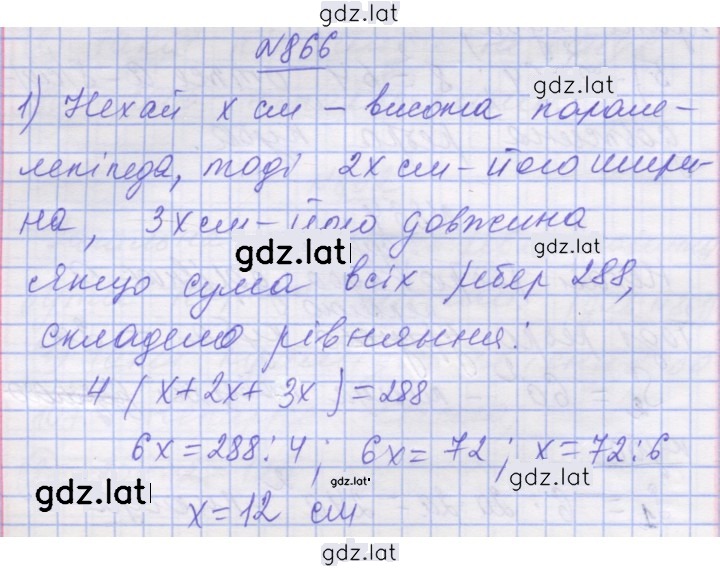 gdz.lat
№866
gdz.lat
1) Нехай x см – висота парале-
лепіпеда, тоді 2x см – його шири-
на, 3x см – його довжина
gdz.lat
Якщо сума всіх ребер 288,
складемо рівняння:
4 (x+2x+3x) = 288
6x = 288:4; 6x = 72; x = 72:6
gdz.lat gdz.lat gdz.lat
x = 12 см
gdz.lat